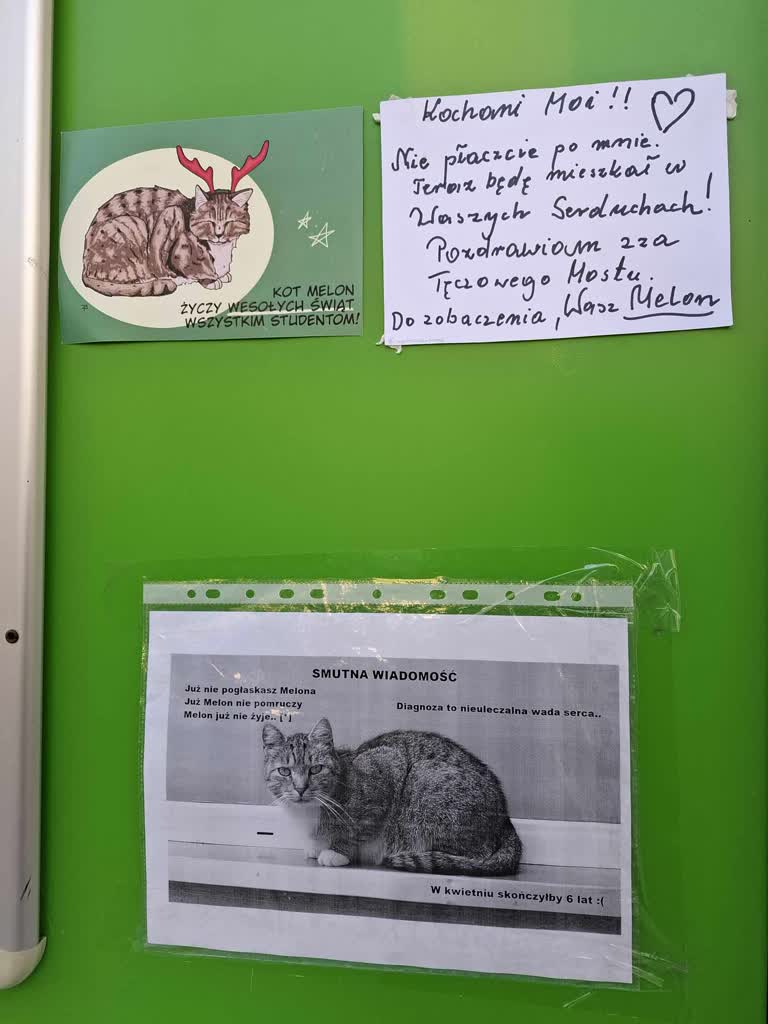 KOT MELON
ŻYCZY WESOŁYCH ŚWIĄT
WSZYSTKIM STUDENTOM!
Kochani Moi!! ♡
Nie płaczcie po mnie.
Teraz będę mieszkał w
Waszych Serduchach!
Pozdrawiam zza
Tęczowego Mostu.
Do zobaczenia, Wasz Melon
SMUTNA WIADOMOŚĆ
Już nie pogłaskasz Melona
Już Melon nie pomruczy
Melon już nie żyje.. [*]
Diagnoza to nieuleczalna wada serca..
W kwietniu skończyłby 6 lat :(